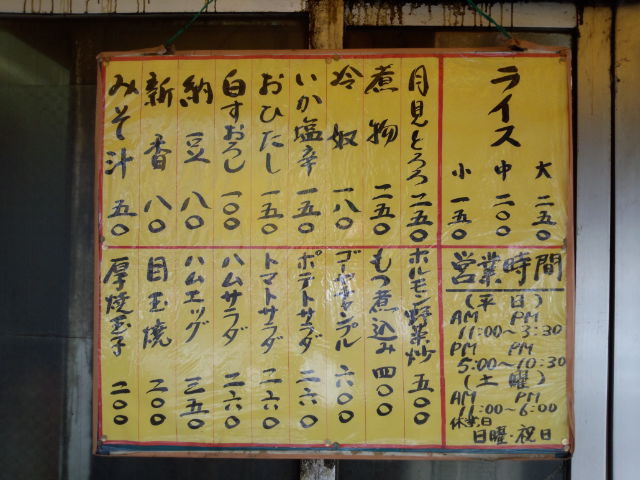 ライス
大 二五〇
中 二〇〇
小 一五〇
月見とろろ 二五〇
煮物 二五〇
冷奴 一八〇
いか塩辛 一五〇
おひたし 一五〇
白すおろし 一〇〇
納豆 八〇
新香 八〇
みそ汁 五〇
営業時間
(平日)
AM PM
11:00~3:30
PM PM
5:00~10:30
(土曜)
AM PM
11:00~6:00
休業日
日曜・祝日
ホルモン野菜炒 五〇〇
もつ煮込み 四〇〇
ゴーヤチャンプル 六〇〇
ポテトサラダ 二六〇
トマトサラダ 二六〇
ハムサラダ 二六〇
ハムエッグ 三五〇
目玉焼 二〇〇
厚焼玉子 二〇〇